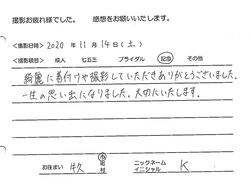 撮影お疲れ様でした。 感想をお願いいたします。
<撮影日時> 2020 年 11 月 14 日 ( 土 )
<撮影種類> 成人 七五三 ブライダル 記念 その他
綺麗に着付けや撮影していただきありがとうございました。
一生の思い出になりました。大切にいたします。
お住まい 市 町 村
ニックネーム
イニシャル K